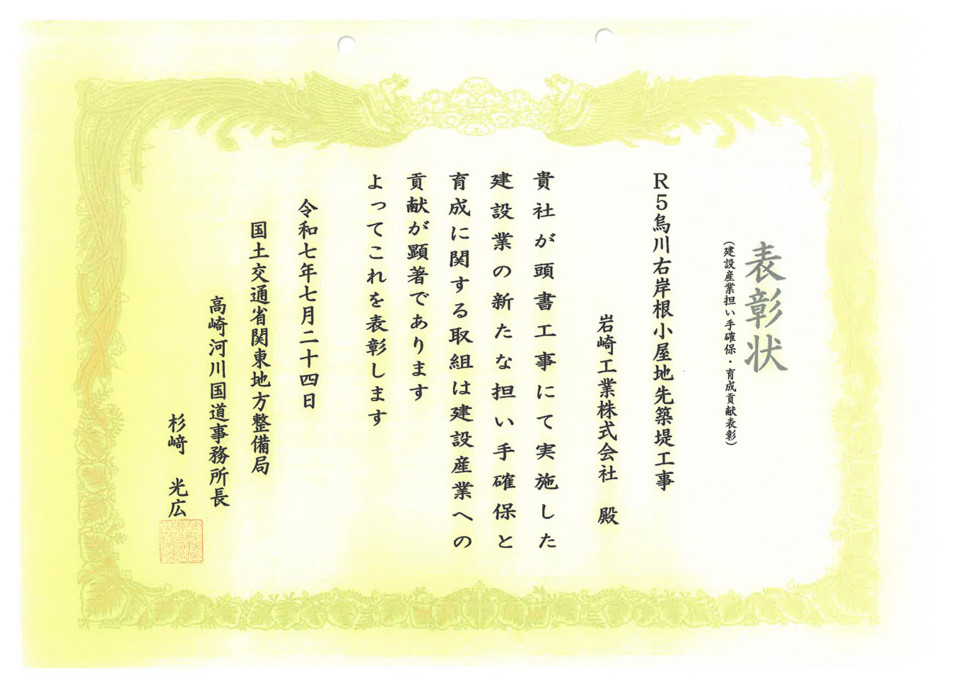 表彰状
(建設産業担い手確保・育成貢献表彰)
R5烏川右岸根小屋地先築堤工事
岩崎工業株式会社 殿
貴社が頭書工事にて実施した
建設業の新たな担い手確保と
育成に関する取組は建設産業への
貢献が顕著であります
よってこれを表彰します
令和七年七月二十四日
国土交通省関東地方整備局
高崎河川国道事務所長
杉﨑 光広